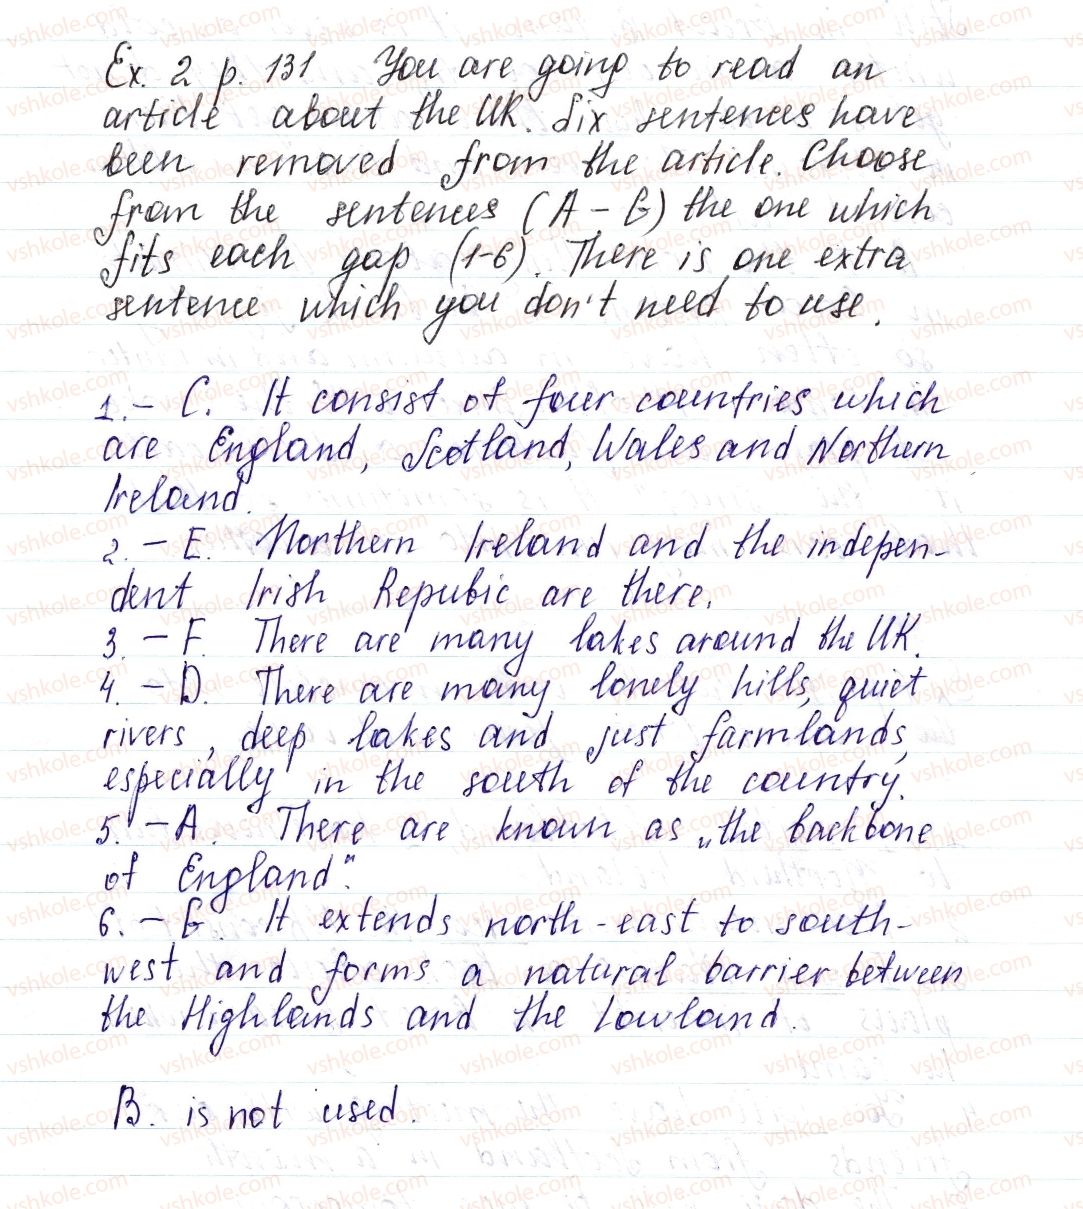 Ex. 2 p. 131 You are going to read an
article about the UK. Six sentences have
been removed from the article. Choose
from the sentences (A – G) the one which
fits each gap (1-6). There is one extra
sentence which you don't need to use.
1. – C. It consist of four countries which
are England, Scotland, Wales and Northern
Ireland.
2. – E. Northern Ireland and the indepen-
dent Irish Repubic are there.
3. – F. There are many lakes around the UK.
4. – D. There are many lonely hills, quiet
rivers, deep lakes and just farmlands,
especially in the south of the country.
5. – A. There are known as „the backbone
of England".
6. – G. It extends north-east to south-
west and forms a natural barrier between
the Highlands and the Lowland.
B. is not used.
vshkole.com